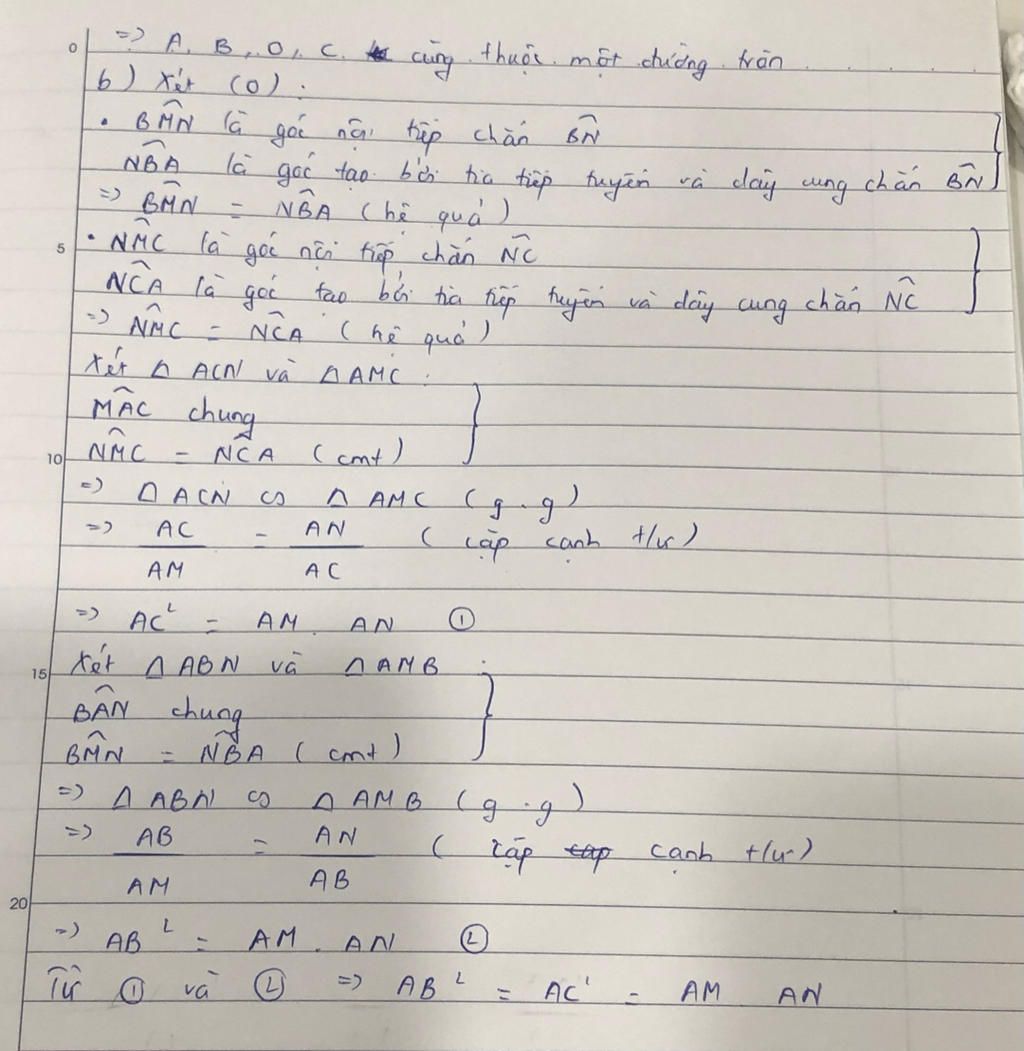 0
=> A, B, O, C cùng thuộc một đường tròn
b) Xét (O):
• BM̂N là góc nội tiếp chắn BN̂
NB̂A là góc tạo bởi tia tiếp tuyến và dây cung chắn BN̂
=> BM̂N = NB̂A (hệ quả)
5 • NM̂C là góc nội tiếp chắn NC̑
NĈA là góc tạo bởi tia tiếp tuyến và dây cung chắn NC̑
=> NM̂C = NĈA (hệ quả)
Xét Δ ACN và Δ AMC:
MÂC chung
10 NM̂C = NĈA (cmt)
=> Δ ACN ∽ Δ AMC (g.g)
=> AC/AM = AN/AC (cặp cạnh t/ư)
=> AC² = AM . AN ①
15 Xét Δ ABN và Δ AMB:
BÂN chung
BM̂N = NB̂A (cmt)
=> Δ ABN ∽ Δ AMB (g.g)
=> AB/AM = AN/AB (cặp cạnh t/ư)
20
=> AB² = AM . AN ②
Từ ① và ② => AB² = AC² = AM AN